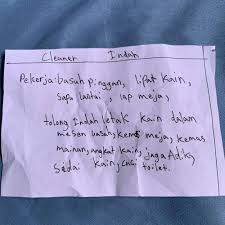 Cleaner Indah
Pekerja: basuh pinggan, lipat kain,
sapu lantai, lap meja,
tolong Indah letak kain dalam
mesen basan, kemas meja, kemas
mainan, angkat kain, jaga Adik,
Sedai kain, cuci toilet.